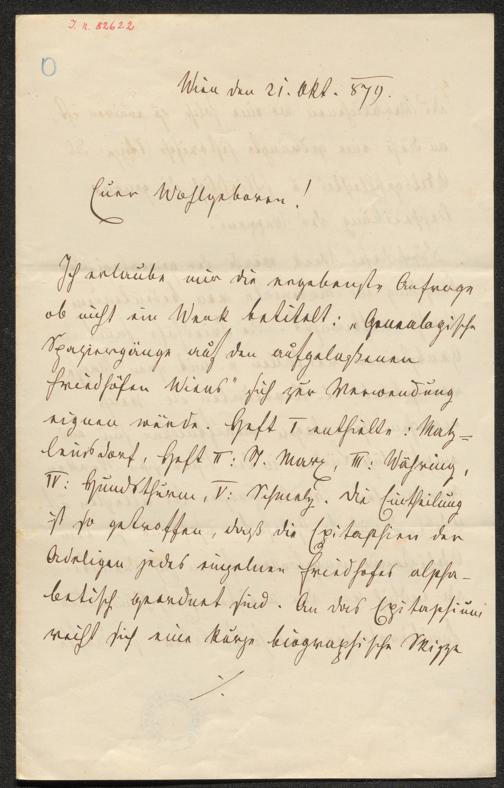 J. N. 82622
Wien den 21. Okt. 879.
Euer Wohlgeboren!
Ich erlaube mir die ergebenste Anfrage
ob nicht ein Werk betitelt: „Genealogische
Spaziergänge auf den aufgelaßenen
Friedhöfen Wiens" sich zur Verwendung
eignen würde. Heft I enthielte: Matz-
leinsdorf, Heft II: St. Marx, III: Währing,
IV: Hundsthurm, V: Schmelz. Die Eintheilung
ist so getroffen, daß die Epitaphien der
Adeligen jedes einzelnen Friedhofes alpha-
betisch geordnet sind. An das Epitaphium
reiht sich eine kurze biographische Skizze
./.